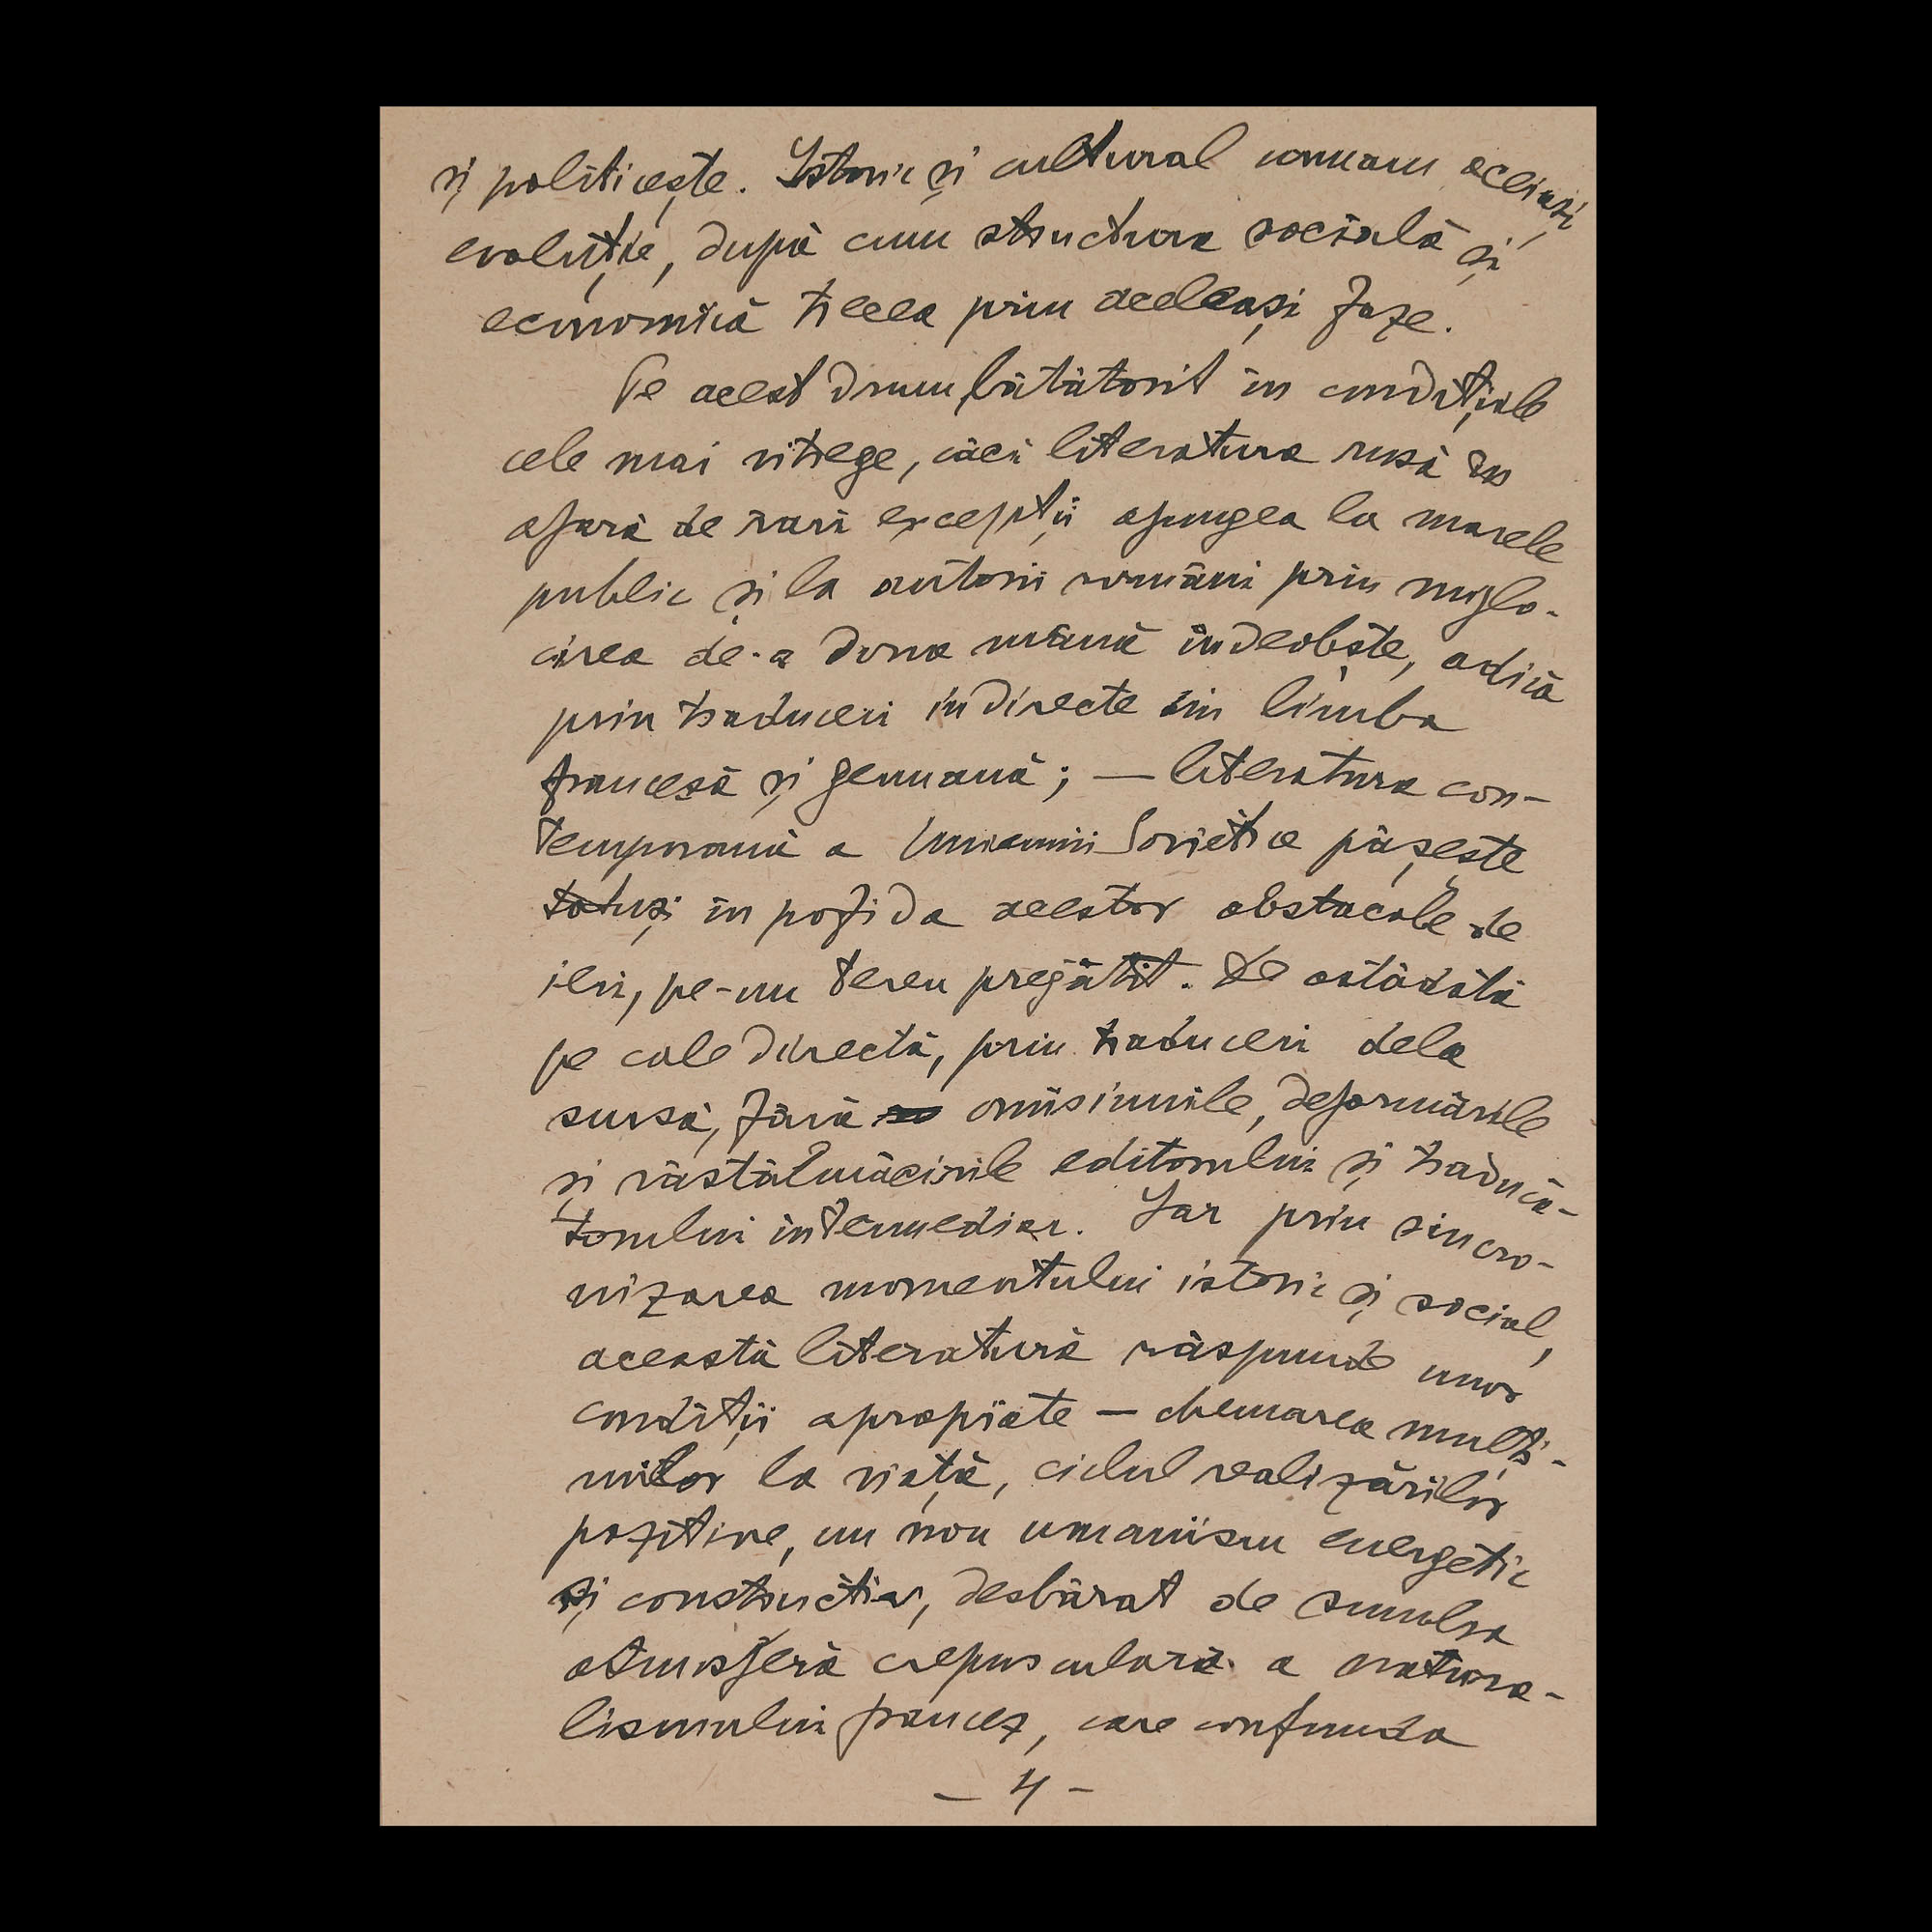 și politicește. Istoric și cultural urmam aceiași
evoluție, după cum structura socială și
economică trecea prin aceleași faze.
Pe acest drum, bătătorit în condițiile
cele mai vitrege, căci literatura rusă în
afară de rari excepții ajungea la marele
public și la autorii români prin mijlo-
cirea de-a doua mână îndeobște, adică
prin traduceri indirecte din limba
franceză și germană; — literatura con-
temporană a Uniunii Sovietice pășește
totuși în pofida acestor obstacole de
ieri, pe-un teren pregătit. De astădată
pe cale directă, prin traduceri dela
sursă, fără omisiunile, deformările
și răstălmăcirile editorului și traducă-
torului intermediar. Iar prin sincro-
nizarea momentului istoric și social,
această literatură răspunde unor
condiții apropiate — chemarea mulți-
milor la viață, ciclul realizărilor
pozitive, un nou umanism energetic
și constructiv, desbărat de sumbra
atmosferă crepusculară a natura-
lismului francez, care confunda
— 4 —